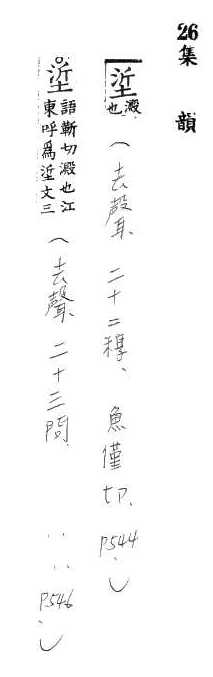 26集 韻
垽澱也(去聲、二十二稕、魚僅切、P544、)
垽語靳切澱也江東呼為垽文三(去聲、二十三問、〃 〃 P546、)